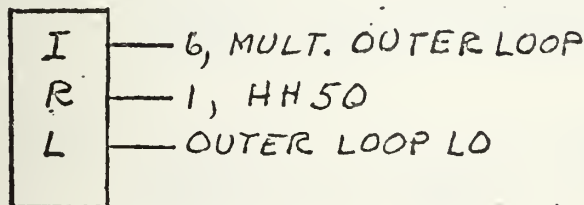 I 6, MULT. OUTER LOOP
R 1, HH50
L OUTER LOOP LO